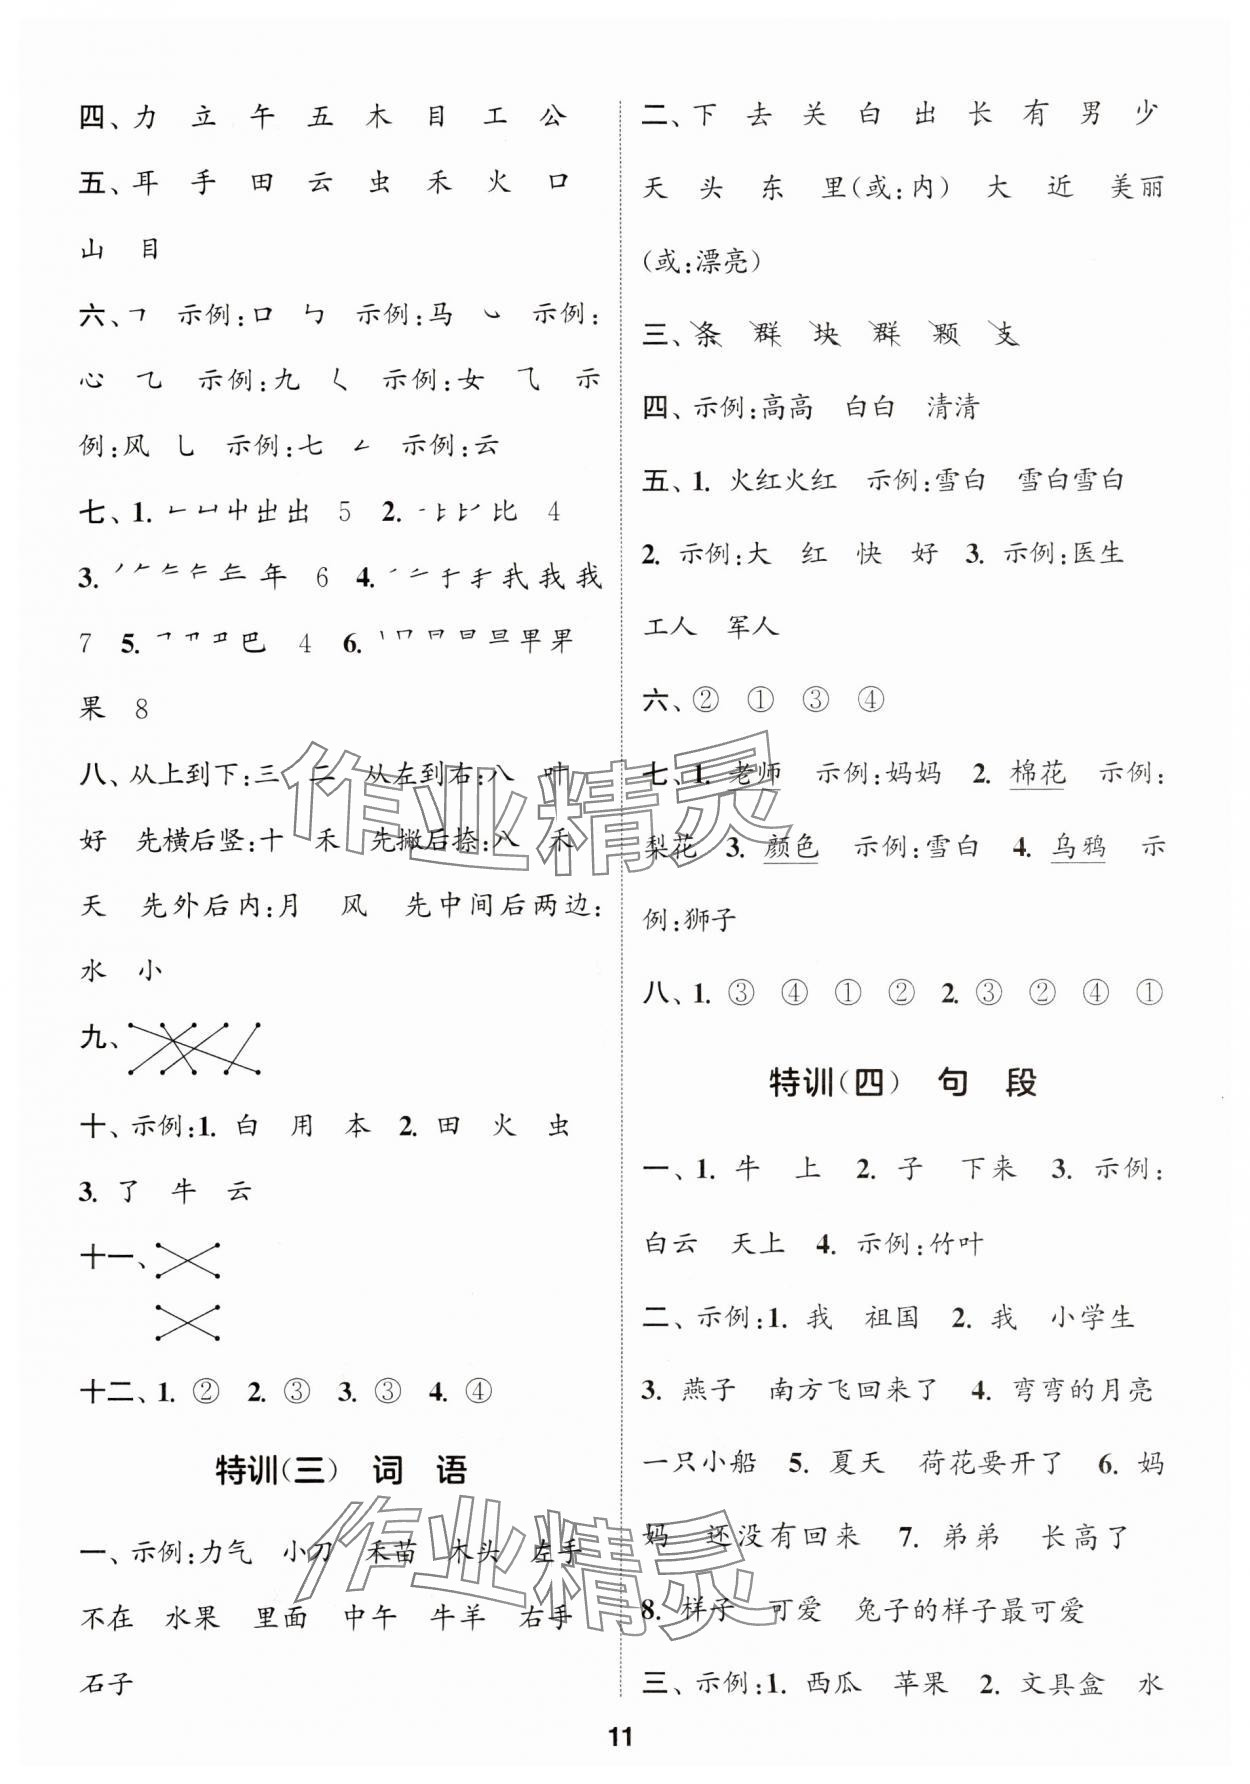 四、力 立 午 五 木 目 工 公
五、耳 手 田 云 虫 禾 火 口
山 目
六、㇕ 示例:口 ㇉ 示例:马 ㇃ 示例:
心 ㇠ 示例:九 ㇛ 示例:女 ⺄ 示
例:风 ㇟ 示例:七 ㇜ 示例:云
七、1. 出 5 2. 比 4
3. 年 6 4. 我 我 我
7 5. 巴 4 6. 果
果 8
八、从上到下:三 二 从左到右:八 叶
好 先横后竖:十 禾 先撇后捺:八 禾
天 先外后内:月 风 先中间后两边:
水 小
九、
十、示例:1. 白 用 本 2. 田 火 虫
3. 了 牛 云
十一、
十二、1. ② 2. ③ 3. ③ 4. ④
特训(三) 词 语
一、示例:力气 小刀 禾苗 木头 左手
不在 水果 里面 中午 牛羊 右手
石子
二、下 去 关 白 出 长 有 男 少
天 头 东 里(或:内) 大 近 美丽
(或:漂亮)
三、条 群 块 群 颗 支
四、示例:高高 白白 清清
五、1. 火红火红 示例:雪白 雪白雪白
2. 示例:大 红 快 好 3. 示例:医生
工人 军人
六、② ① ③ ④
七、1. 老师 示例:妈妈 2. 棉花 示例:
梨花 3. 颜色 示例:雪白 4. 乌鸦 示
例:狮子
八、1. ③ ④ ① ② 2. ③ ② ④ ①
特训(四) 句 段
一、1. 牛 上 2. 子 下来 3. 示例:
白云 天上 4. 示例:竹叶
二、示例:1. 我 祖国 2. 我 小学生
3. 燕子 南方飞回来了 4. 弯弯的月亮
一只小船 5. 夏天 荷花要开了 6. 妈
妈 还没有回来 7. 弟弟 长高了
8. 样子 可爱 兔子的样子最可爱
三、示例:1. 西瓜 苹果 2. 文具盒 水
11
作业精灵
作业精灵